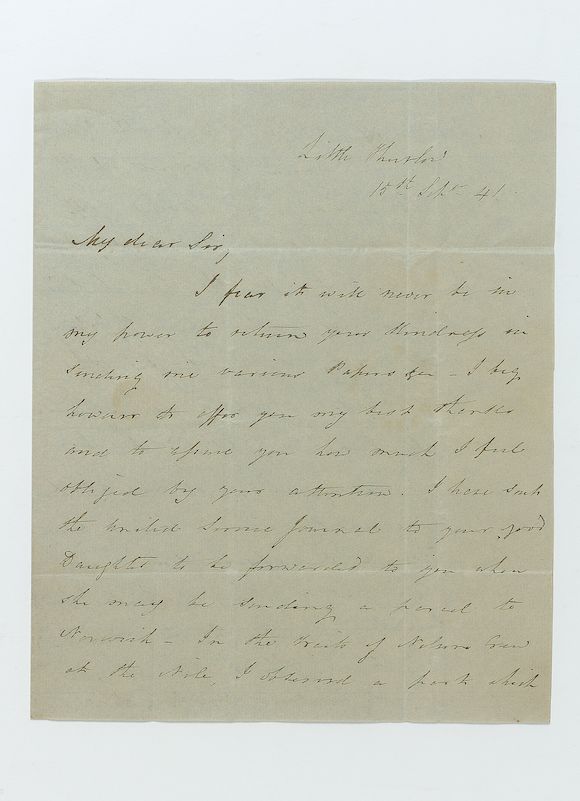 Little Thurlow
15th Septr 41.
My dear Sir,
I fear it will never be in
my power to return your Kindness in
sending me various Papers &c - I beg
however to offer you my best thanks
and to assure you how much I feel
obliged by your attention. I have sent
the United Service Journal to your good
Daughter to be forwarded to you when
she may be sending a parcel to
Norwich - In the of Nelsons Crew
at the Nile, I observed a which